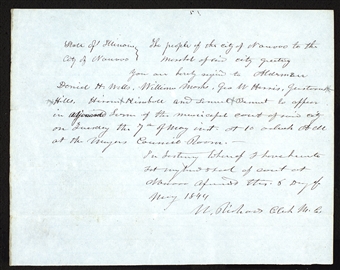 State of Illinois } The people of the city of Nauvoo to the
City of Nauvoo } Marshal of said city greeting
You are hereby to Alderman
Daniel H. Wells, William Marks, Geo W. Harris, Gustavus
Hills, Hiram Kimball and to appear
in adjourned Term of the municipal court of said city
on Tuesday the 7th of May inst. at 10 o'clock A M
at the Mayors Council Room.—
In testimony whereof I hereunto
set my hand & seal of court at
Nauvoo this 6 Day of
May 1844
W. Richards Clerk M. C.